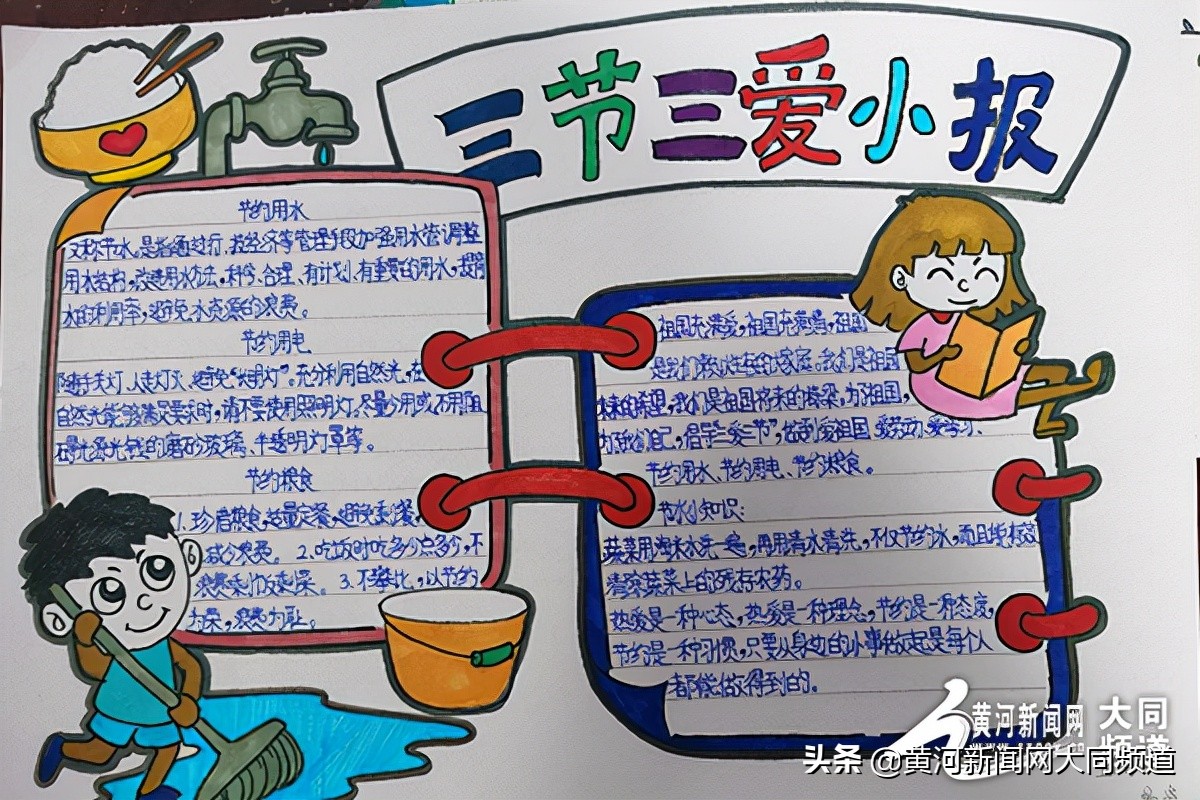 三节三爱小报
节约用水
又称节水。是指通过行、技经济等管理手段加强用水管调整
用水结构,改进用水方法,科学、合理、有计划、有重点的用水,提高
水的利用率,避免水资源的浪费。
节约用电
随手关灯、人走灯灭,避免“长明灯”。充分利用自然光,在
自然光能够满足要求时,请不要使用照明灯。尽量少用或不用阻
透光的磨砂玻璃、半透明灯罩等。
节约粮食
1.珍惜粮食,适量定餐,避免剩餐,
减少浪费。 2.吃饭时吃多少点多少,不
浪费剩饭剩菜。 3.不攀比,以节约
为荣,浪费为耻。
祖国充满爱,祖国充满情,祖国
是我们赖以生存的家庭。我们是祖国
未来的希望,我们是祖国将来的栋梁,为了祖国,
为了我们自己,倡学“三爱三节”,做到爱祖国、爱劳动、爱学习、
节约用水、节约用电、节约粮食。
节水小知识:
蔬菜用淘米水先一遍,再用清水清洗,不仅节约水,而且
清除蔬菜上的残存农药。
热爱是一种心态,热爱是一种理念,节约是一种态度,
节约是一种习惯,只要从身边的小事做起是每个人
都能做得到的。
黄河新闻网 大同频道
头条 @黄河新闻网大同频道